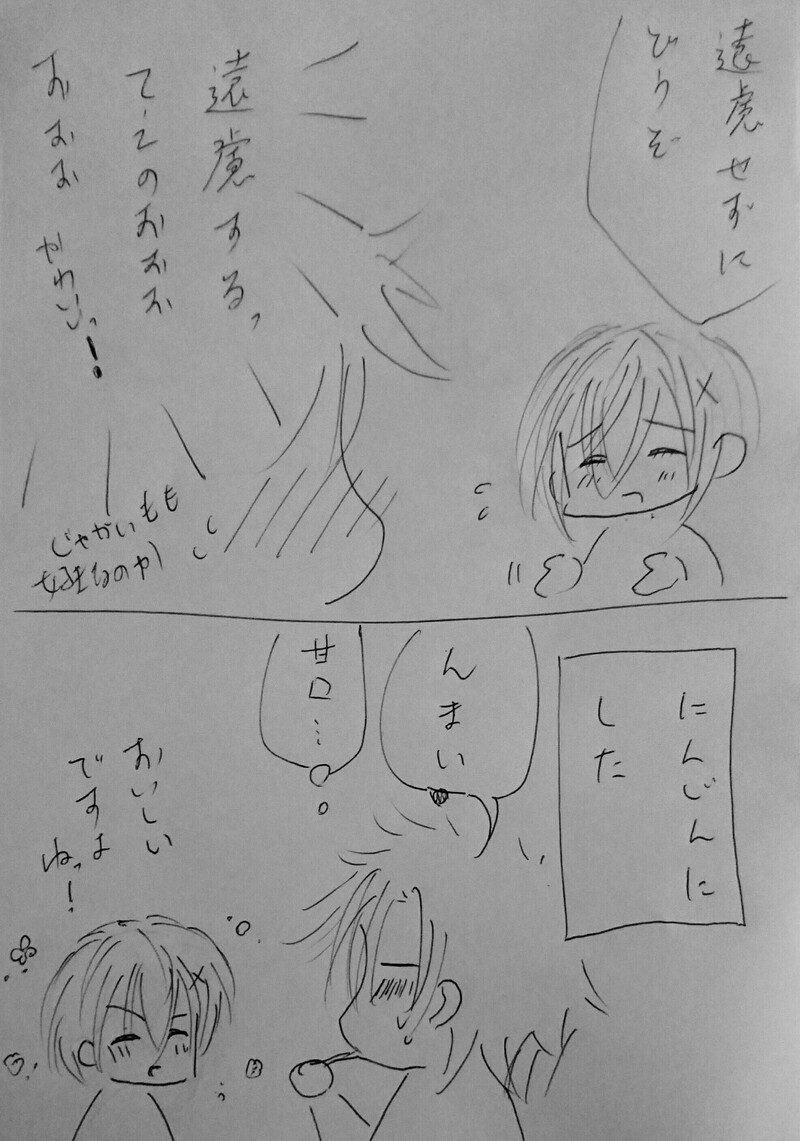 遠慮せずに
どうぞ
遠慮する、
てこのおおお
おおお やわいっ!
じゃがいもも
好きなのか
にんじんに
した
んまい
甘口…
おいしい
ですよ
ねっ!